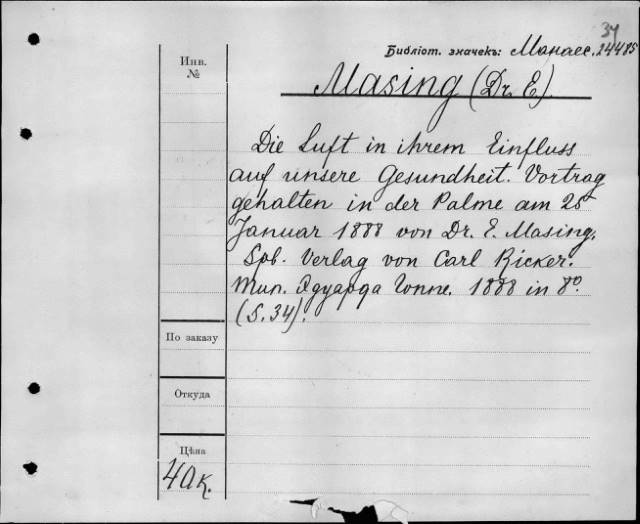 34
Библіот. значекъ: Манаес. 24485
Инв.
№
Masing (Dr. E.)
Die Luft in ihrem Einfluss
auf unsere Gesundheit. Vortrag
gehalten in der Palme am 25
Januar 1888 von Dr. E. Masing.
Spb. Verlag von Carl Ricker.
Тип. Эдуарда Гоппе. 1888 in 8º.
(S. 34).
По заказу
Откуда
Цѣна
40 к.